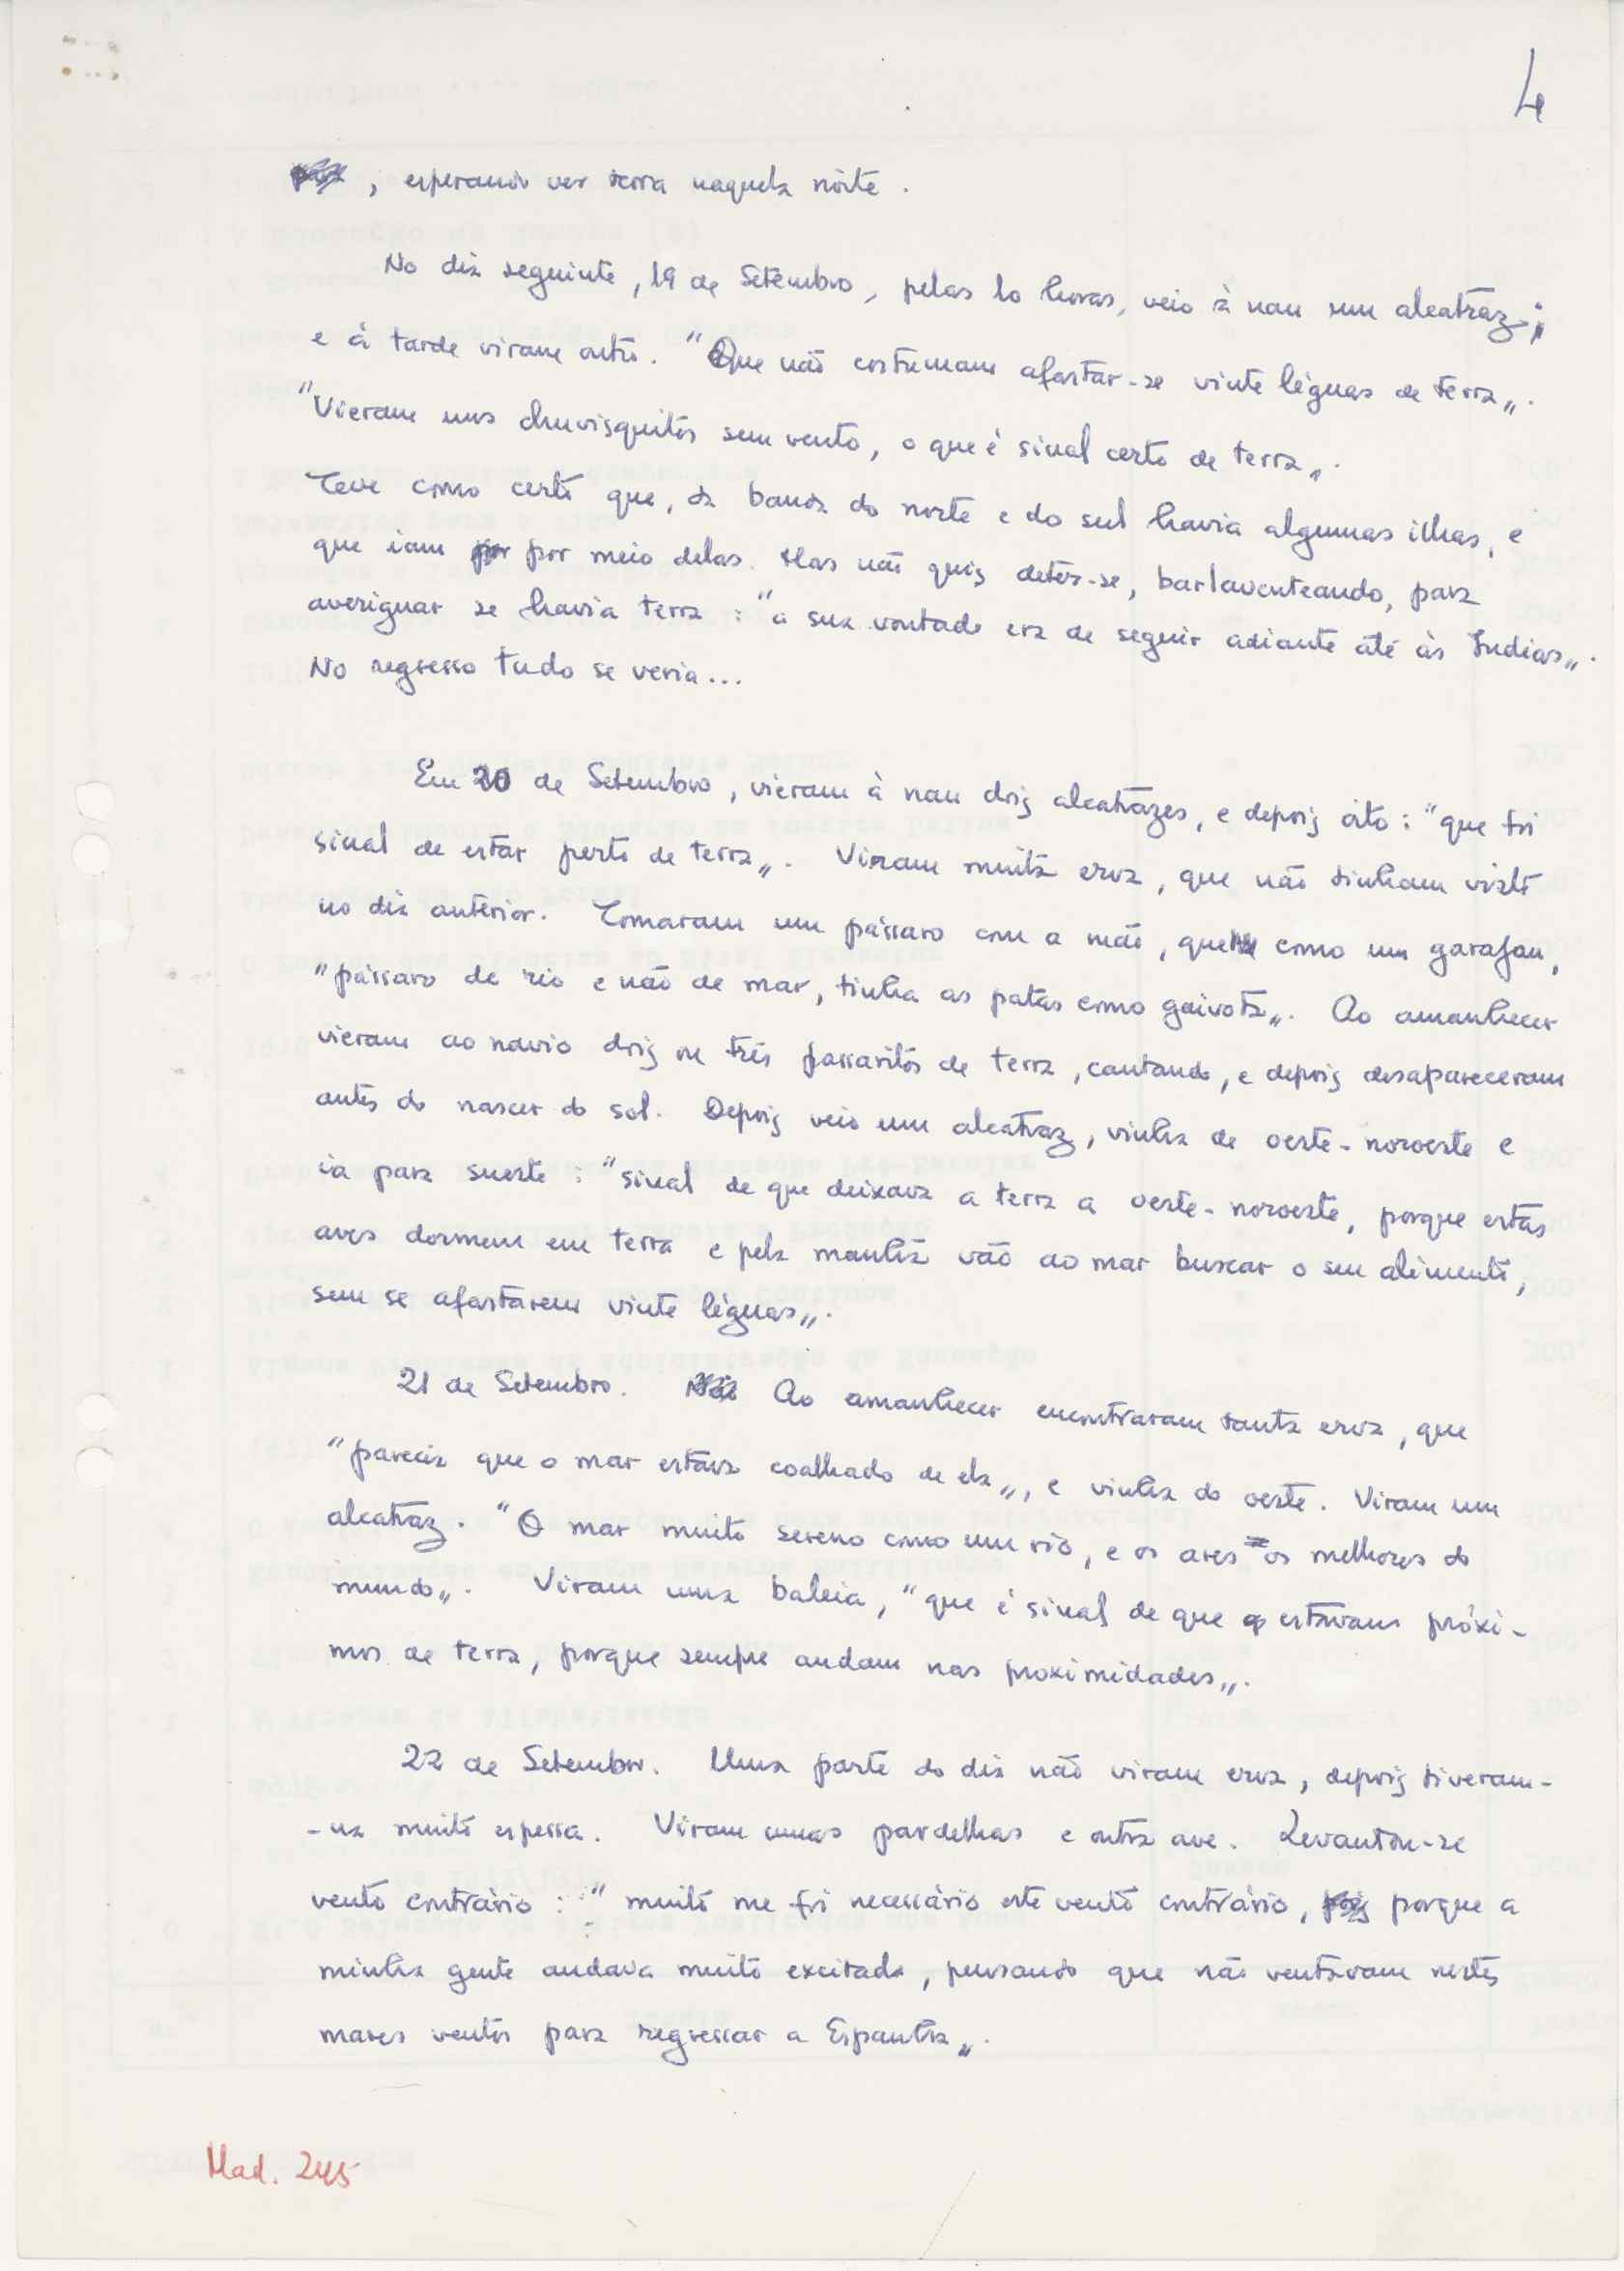 4
, esperando ver terra naquela noite.
No dia seguinte, 19 de Setembro, pelas 10 horas, veio à nau um alcatraz;
e à tarde viram outro. "Que não costumam afastar-se vinte léguas de terra„.
"Vieram uns chuvisquitos sem vento, o que é sinal certo de terra„.
Teve como certo que, da banda do norte e do sul havia algumas ilhas, e
que iam por meio delas. Mas não quis deter-se, barlaventeando, para
averiguar se havia terra: "a sua vontade era de seguir adiante até às Indias„.
No regresso tudo se veria...
Em 20 de Setembro, vieram à nau dois alcatrazes, e depois oito: "que foi
sinal de estar perto de terra„. Viram muita erva, que não tinham visto
no dia anterior. Tomaram um pássaro com a mão, que como um garajau,
"pássaro de rio e não de mar, tinha as patas como gaivota„. Ao amanhecer
vieram ao navio dois ou três passaritos de terra, cantando, e depois desapareceram
antes do nascer do sol. Depois veio um alcatraz, vinha de oeste-noroeste e
ia para sueste: "sinal de que deixava a terra a oeste-noroeste, porque estas
aves dormem em terra e pela manhã vão ao mar buscar o seu alimento,
sem se afastarem vinte léguas„.
21 de Setembro. Ao amanhecer encontraram tanta erva, que
"parecia que o mar estava coalhado de ela„, e vinha do oeste. Viram um
alcatraz. "O mar muito sereno como um rio, e os ares os melhores do
mundo„. Viram uma baleia, "que é sinal de que estavam próxi-
mos de terra, porque sempre andam nas proximidades„.
22 de Setembro. Uma parte do dia não viram erva, depois tiveram-
-na muito espessa. Viram umas pardelhas e outra ave. Levantou-se
vento contrário: "muito me foi necessário este vento contrário, porque a
minha gente andava muito excitada, pensando que não ventavam nestes
mares ventos para regressar a Espanha„.
Mad. 245